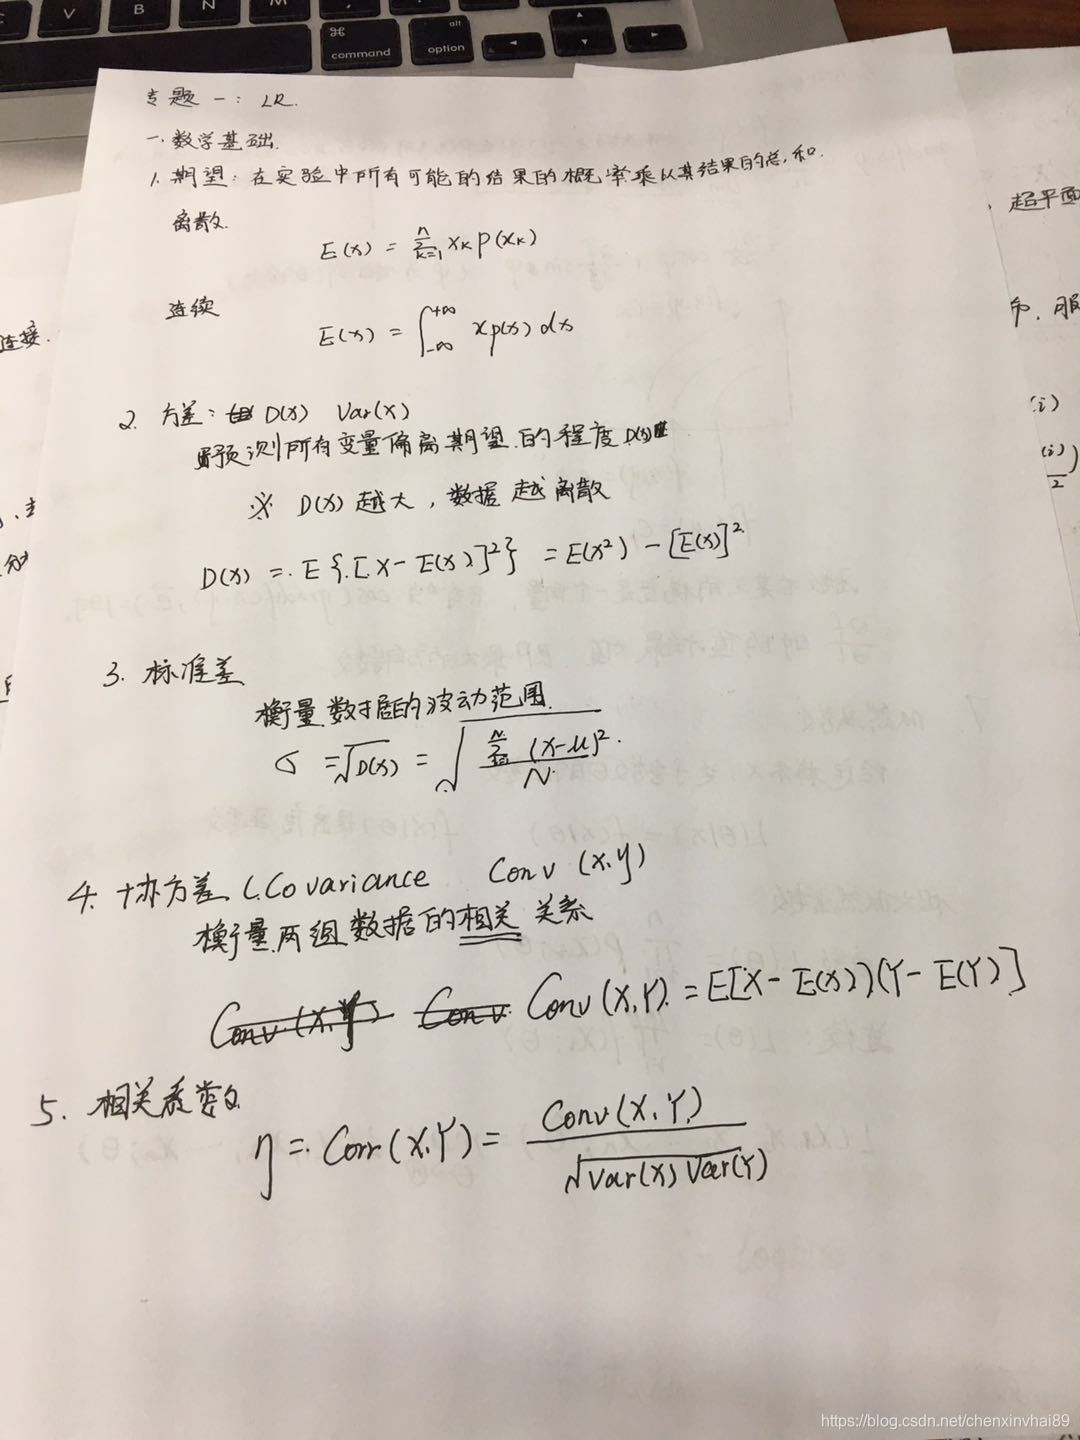 V
B
N
M
⌘
command
alt
option
专题一: LR.
一.数学基础.
1. 期望: 在实验中所有可能的结果的概率乘以其结果的总和.
离散.
E(x) = \sum_{k=1}^{n} x_k p(x_k)
连续
E(x) = \int_{-∞}^{+∞} x p(x) dx
2. 方差: D(x) Var(x)
预测所有变量偏离期望的程度
※ D(x) 越大, 数据越离散
D(x) = E{[X-E(x)]²} = E(x²) - [E(x)]²
3. 标准差
衡量数据的波动范围
σ = √D(x) = √(Σ(x-μ)²/N)
4. 协方差 (.Covariance Conv (x,y)
衡量两组数据的相关关系
Conv (x,y) Conv Conv(X,Y) = E[X-E(x))(Y-E(Y)]
5. 相关系数
η = Corr(X,Y) = Conv(X,Y) / √Var(X)Var(Y)
连接.
超平面
服
(i)
(i)
2
)
https://blog.csdn.net/chenxinvhai89